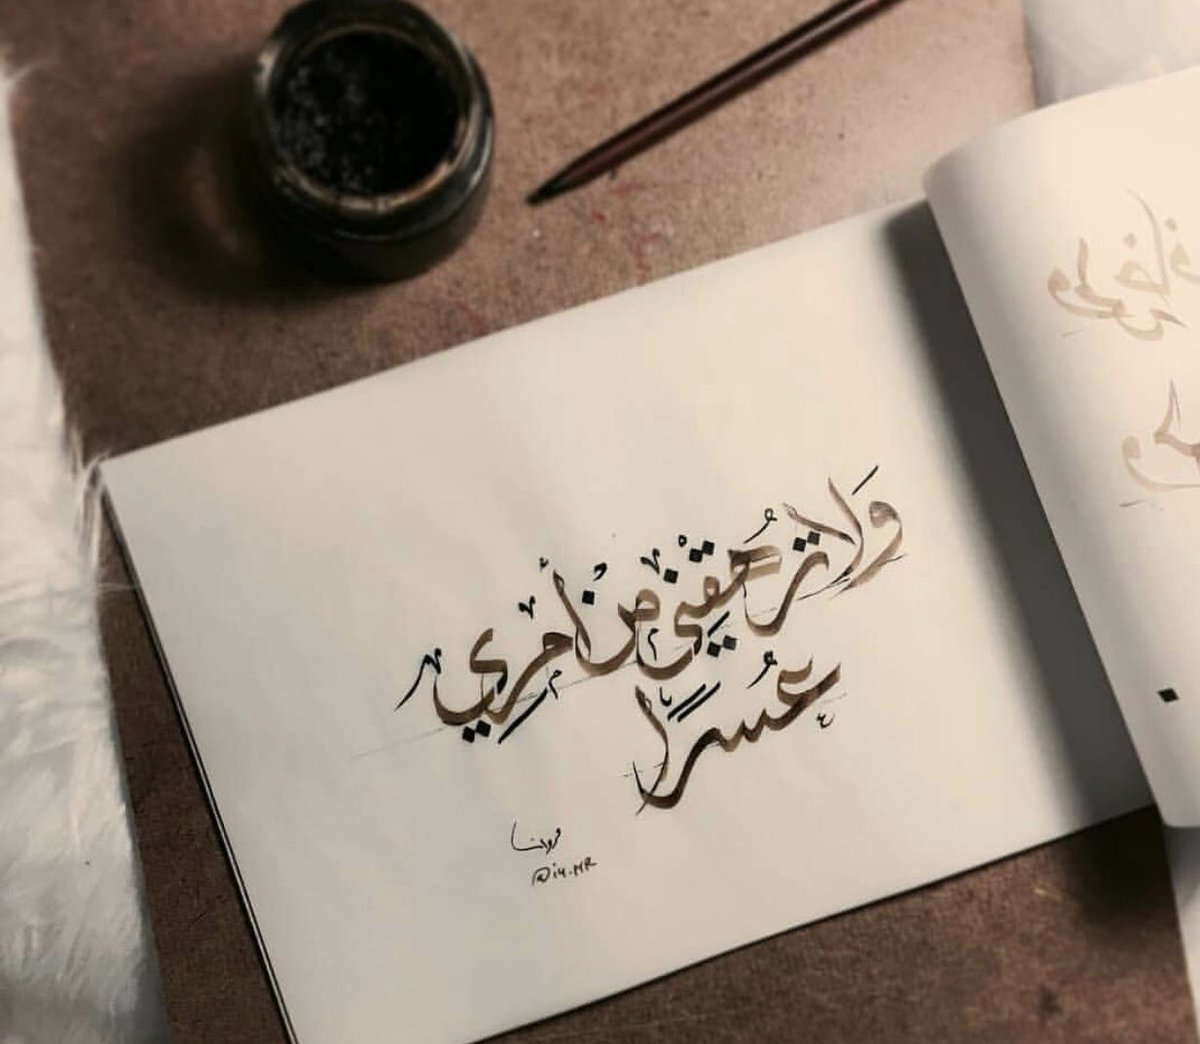 وَلَا تُرهُقْنِي مِنْ أَمْرِي
عُسْرًا
@i4.MR